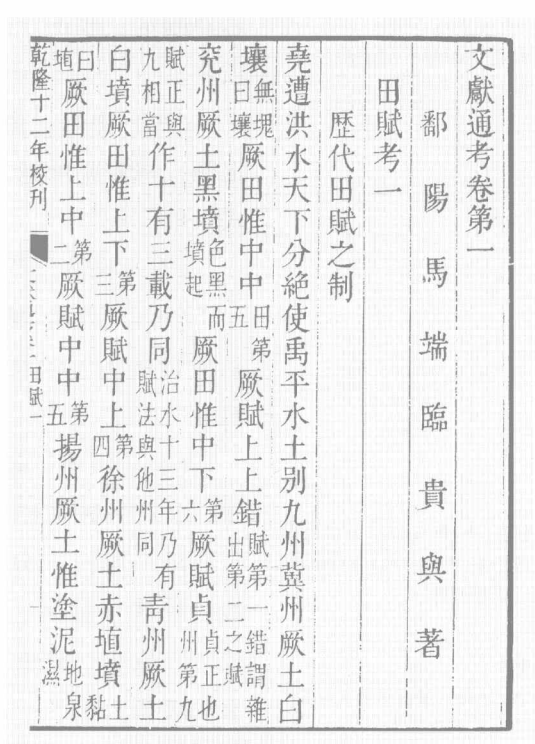 文獻通考卷第一
鄱陽馬端臨貴與著
田賦考一
歴代田賦之制
堯遭洪水天下分絶使禹平水土別九州冀州厥土白
壤無塊曰壤厥田惟中中田第五厥賦上上錯賦第一錯謂雜出第二之賦
兖州厥土黑墳色黑而墳起厥田惟中下第六厥賦貞貞正也州第九
賦正與九相當作十有三載乃同治水十三年乃有賦法與他州同靑州厥土
白墳厥田惟上下第三厥賦中上第四徐州厥土赤埴墳土黏
曰埴厥田惟上中第二厥賦中中第五揚州厥土惟塗泥地泉濕
乾隆十二年校刊
田賦一